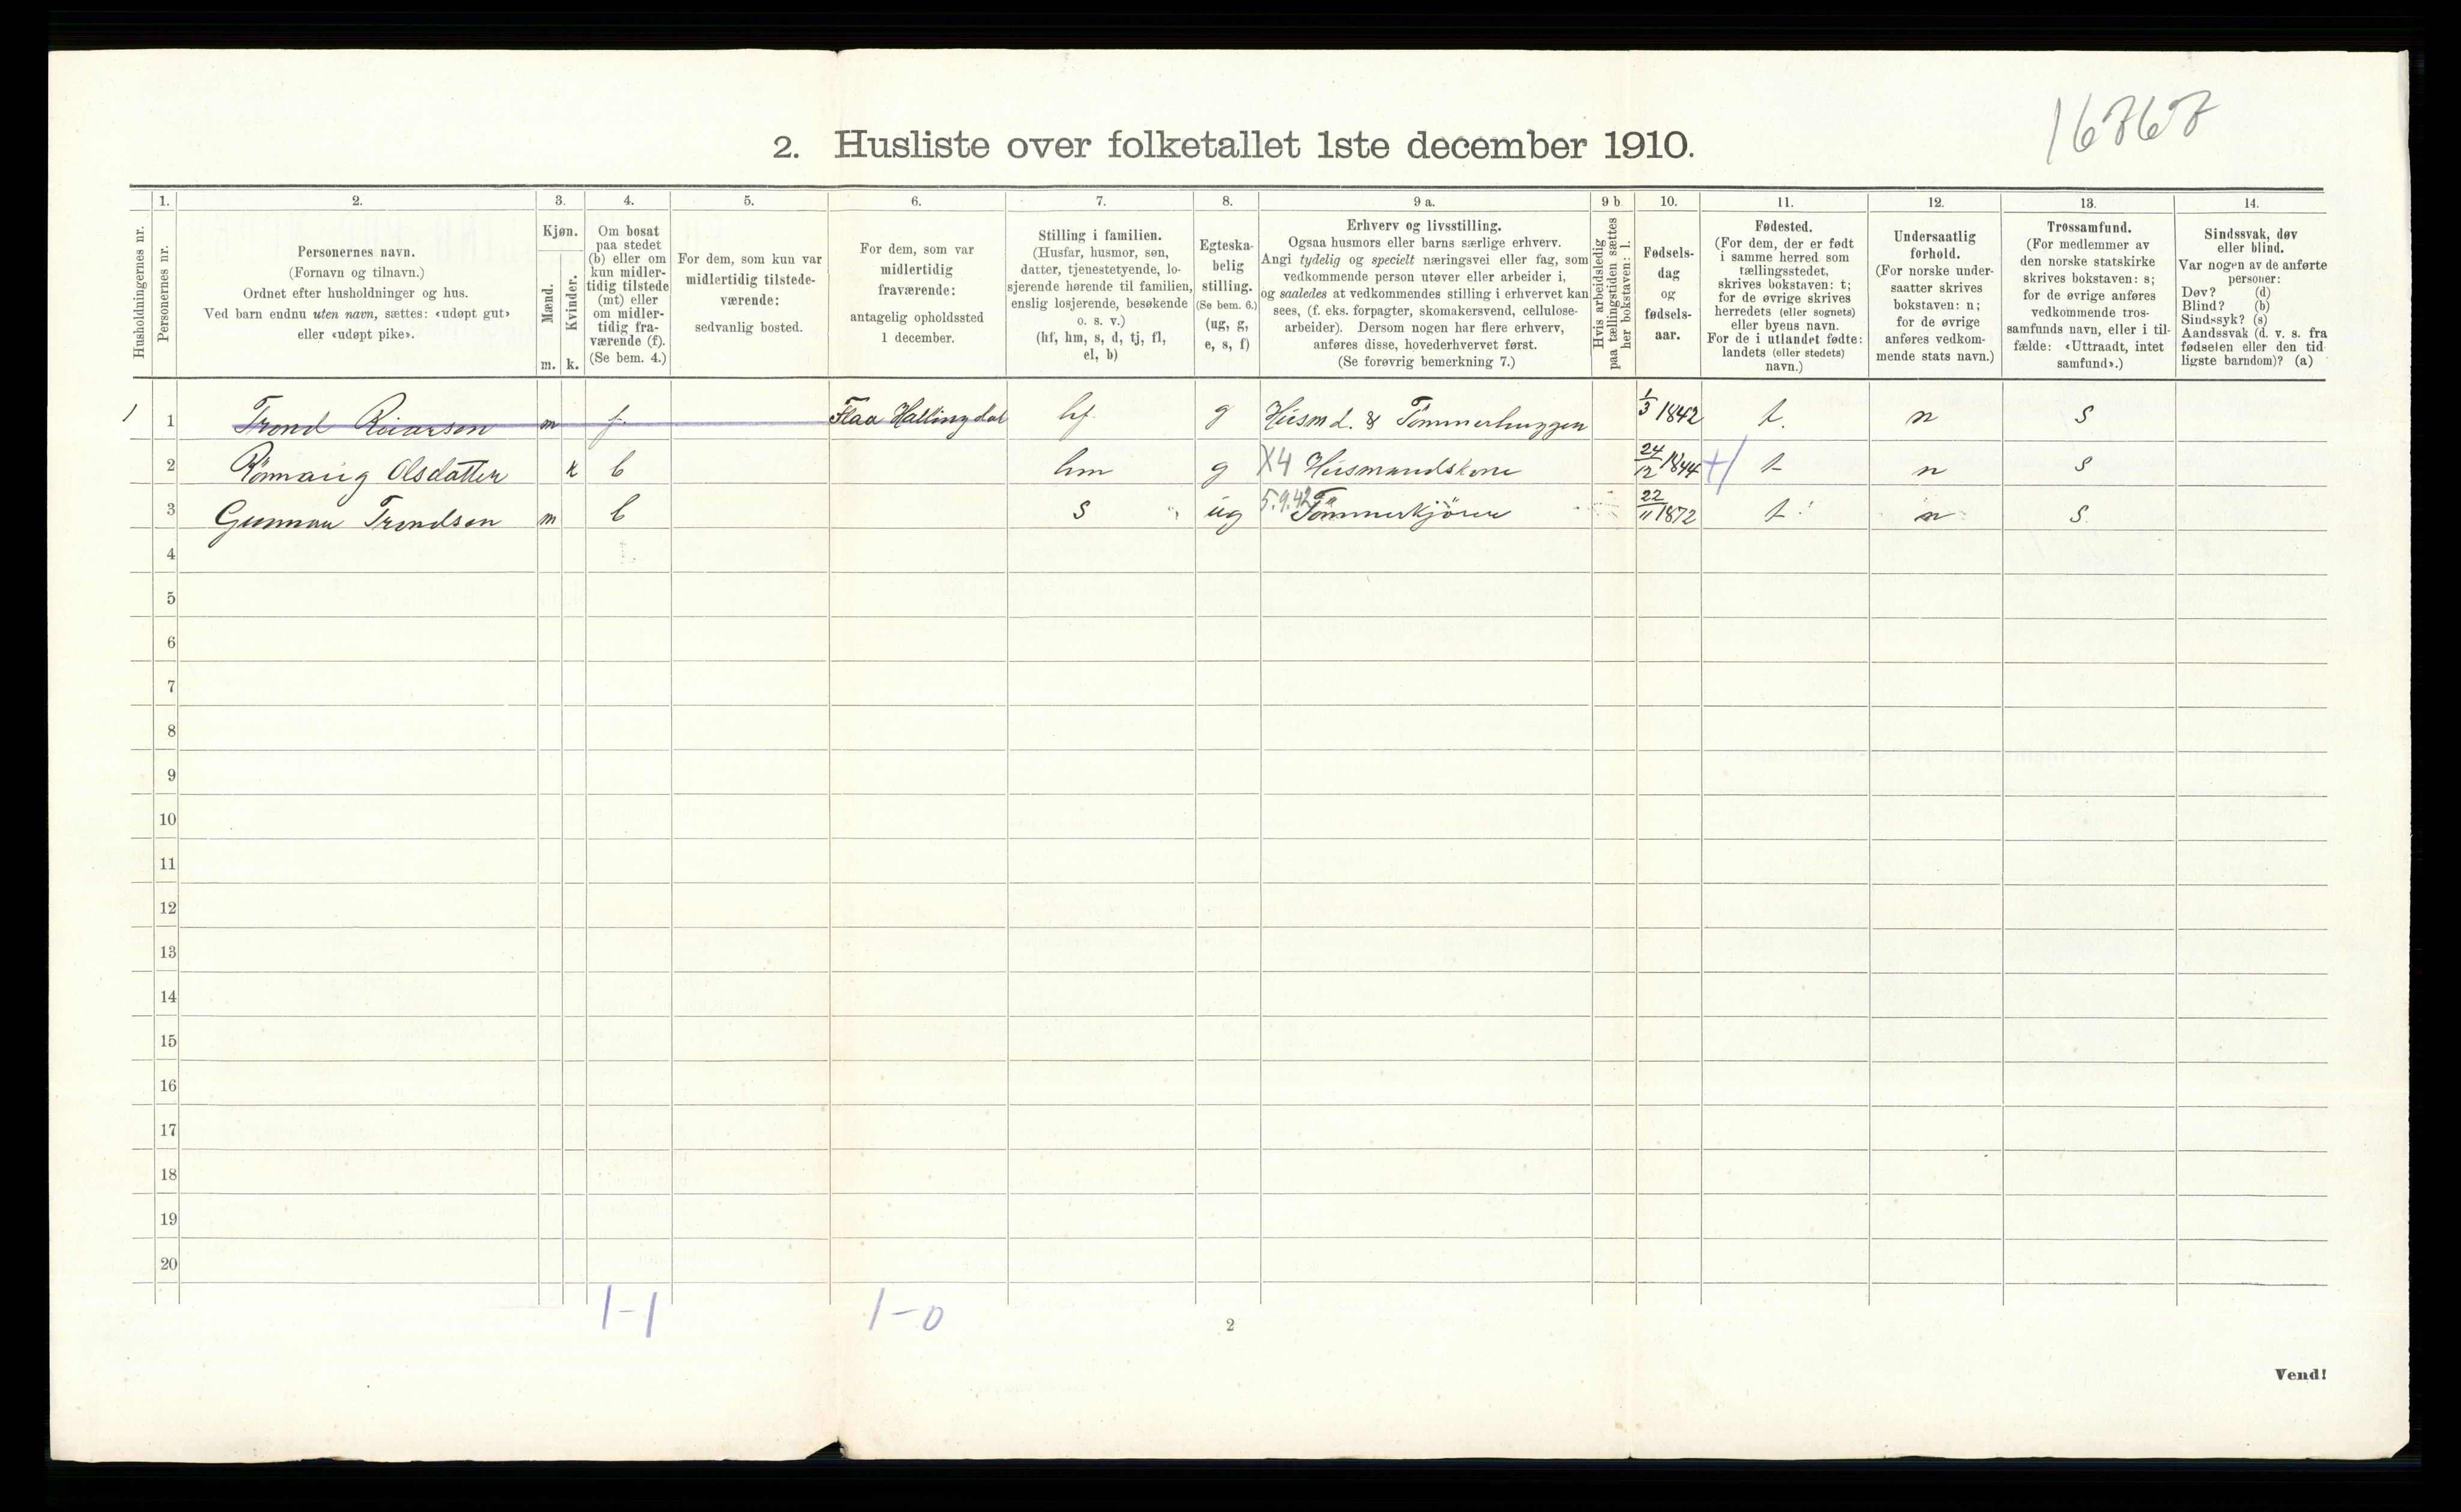 16767
2. Husliste over folketallet 1ste december 1910.
Husholdningernes nr.
1. Personernes nr.
2. Personernes navn.
(Fornavn og tilnavn.)
Ordnet efter husholdninger og hus.
Ved barn endnu uten navn, sættes: «udøpt gut»
eller «udøpt pike».
3. Kjøn.
Mænd. m.
Kvinder. k.
4. Om bosat
paa stedet
(b) eller om
kun midler-
tidig tilstede
(mt) eller
om midler-
tidig fra-
værende (f).
(Se bem. 4.)
5. For dem, som kun var
midlertidig tilstede-
værende:
sedvanlig bosted.
6. For dem, som var
midlertidig
fraværende:
antagelig opholdssted
1 december.
7. Stilling i familien.
(Husfar, husmor, søn,
datter, tjenestetyende, lo-
sjerende hørende til familien,
enslig losjerende, besøkende
o. s. v.)
(hf, hm, s, d, tj, fl,
el, b)
8. Egteska-
belig
stilling.
(Se bem. 6.)
(ug, g,
e, s, f)
9 a. Erhverv og livsstilling.
Ogsaa husmors eller barns særlige erhverv.
Angi tydelig og specielt næringsvei eller fag, som
vedkommende person utøver eller arbeider i,
og saaledes at vedkommendes stilling i erhvervet kan
sees, (f. eks. forpagter, skomakersvend, cellulose-
arbeider). Dersom nogen har flere erhverv,
anføres disse, hovederhvervet først.
(Se forøvrig bemerkning 7.)
9 b. Hvis arbeidsledig
paa tællingstiden sættes
her bokstaven: l.
10. Fødsels-
dag
og
fødsels-
aar.
11. Fødested.
(For dem, der er født
i samme herred som
tællingsstedet,
skrives bokstaven: t;
for de øvrige skrives
herredets (eller sognets)
eller byens navn.
For de i utlandet fødte:
landets (eller stedets)
navn.)
12. Undersaatlig
forhold.
(For norske under-
saatter skrives
bokstaven: n;
for de øvrige
anføres vedkom-
mende stats navn.)
13. Trossamfund.
(For medlemmer av
den norske statskirke
skrives bokstaven: s;
for de øvrige anføres
vedkommende tros-
samfunds navn, eller i til-
fælde: «Uttraadt, intet
samfund».)
14. Sindssvak, døv
eller blind.
Var nogen av de anførte
personer:
Døv? (d)
Blind? (b)
Sindssyk? (s)
Aandssvak (d. v. s. fra
fødselen eller den tid
ligste barndom)? (a)
1 1 Trond m f Flaa Hallingdal hf g Husmd. & Tømmerhuggen 1/3 1842 t n s
2 Rønnaug Olsdatter k b hm g X4 Husmandskone 24/12 1844 t n s
3 Gunnar Trondsen m b s ug 5.9.42 Tømmerkjører 22/11 1872 t n s
4
5
6
7
8
9
10
11
12
13
14
15
16
17
18
19
20
1-1 1-0
2
Vend!